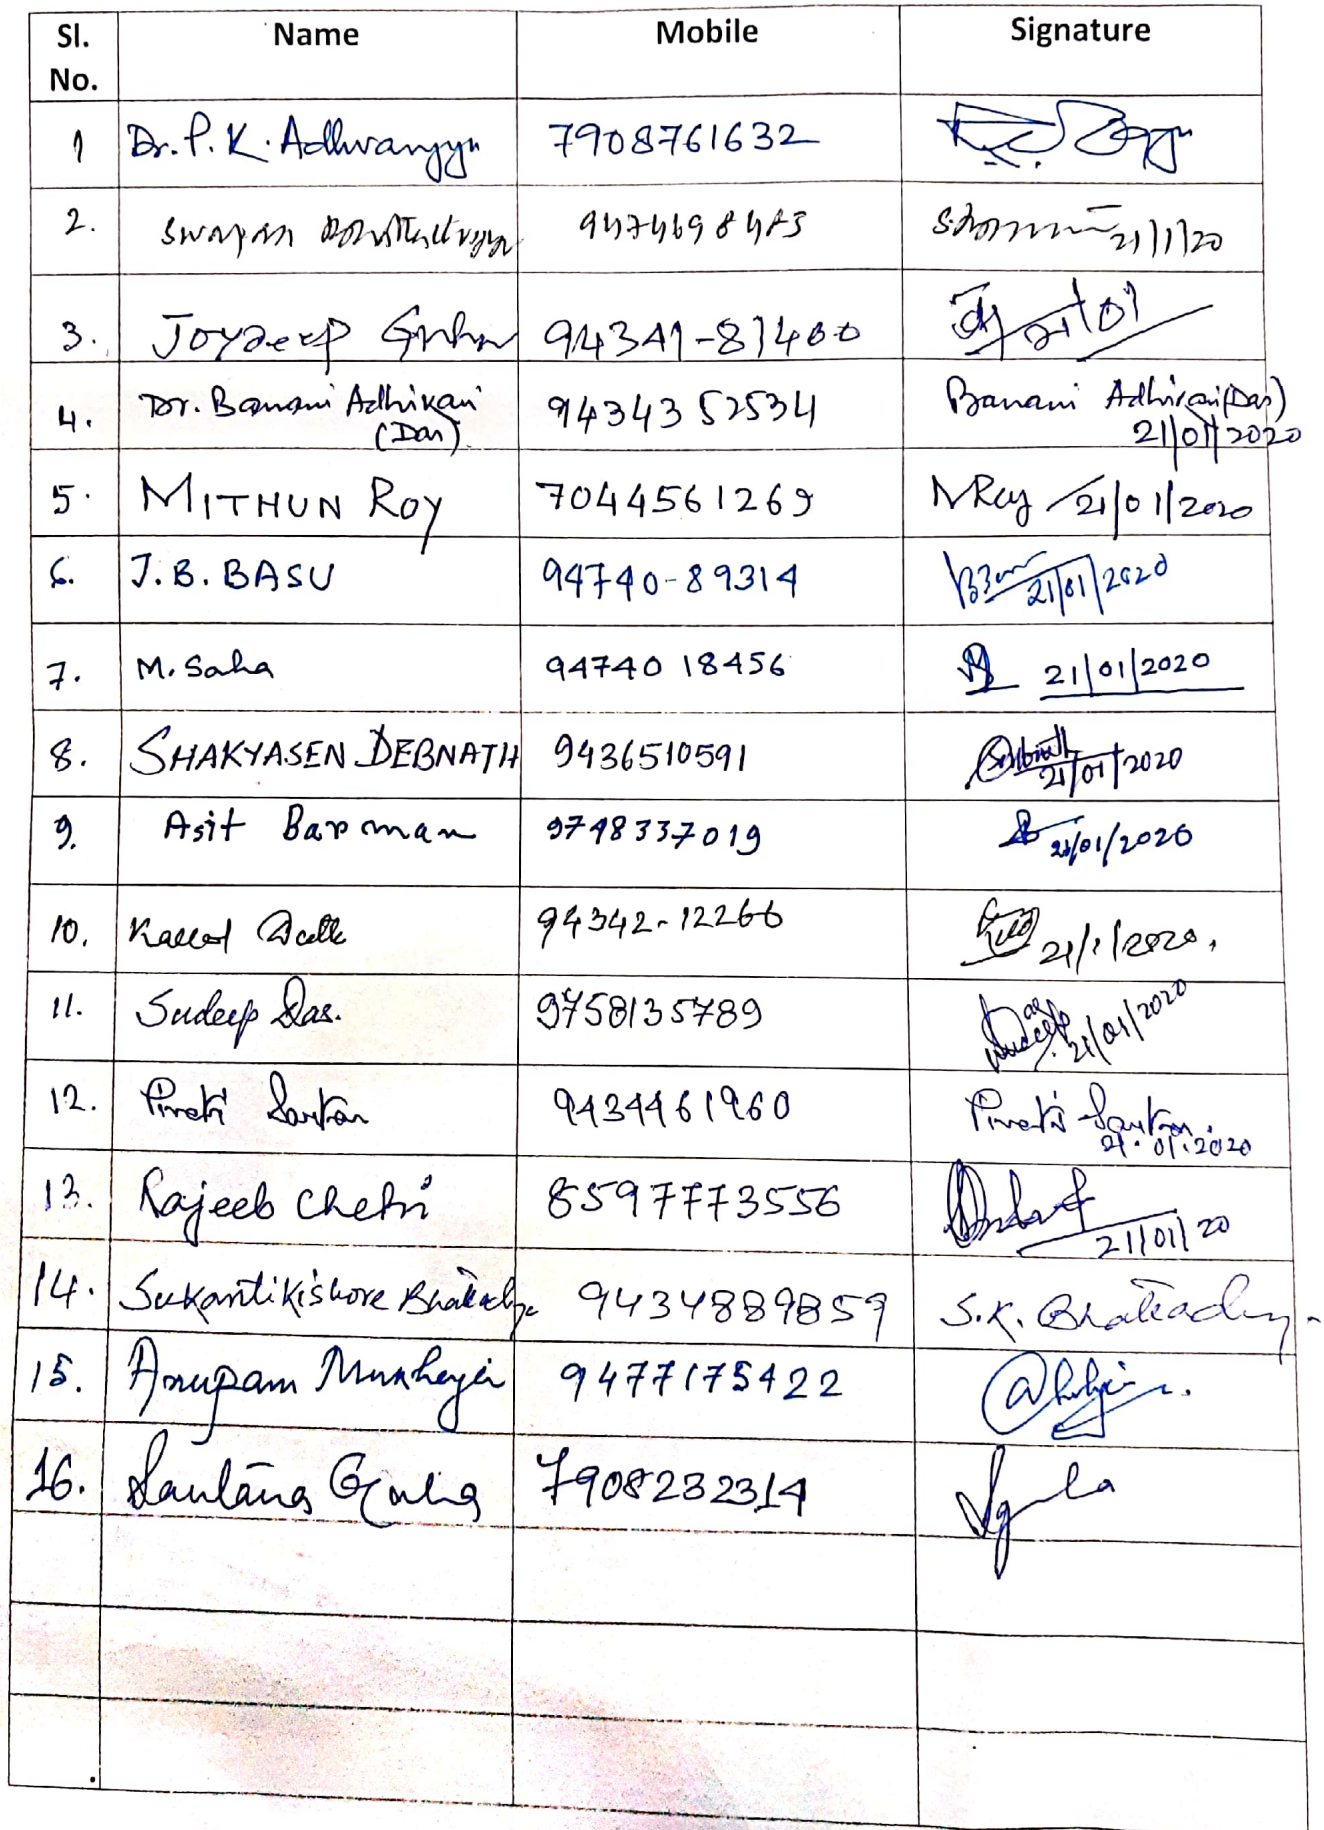 Sl. No. Name Mobile Signature
1 Dr. P. K. Adhvaryyu 7908761632
2. Swapan 21/1/20
3. Joydeep Guha 94341-81400 21/01
4. Dr. Banani Adhikari (Das) 9434352534 Banani Adhikari(Das) 21/01/2020
5. MITHUN ROY 7044561269 MRoy 21/01/2020
6. J.B. BASU 94740-89314 21/01/2020
7. M. Saha 94740 18456 21/01/2020
8. SHAKYASEN DEBNATH 9436510591 21/01/2020
9. Asit Barman 9748337019 21/01/2020
10. 94342-12266 21/1/2020.
11. Sudeep Das. 9758135789 21/01/2020
12. Sarkar 9434461960 Sarkar 21.01.2020
13. Rajeeb Chetri 8597773556 21/01/20
14. Sukantikishore 9434889859 S.K.
15. Anupam Mukherjee 9477175422
16. 7908232314